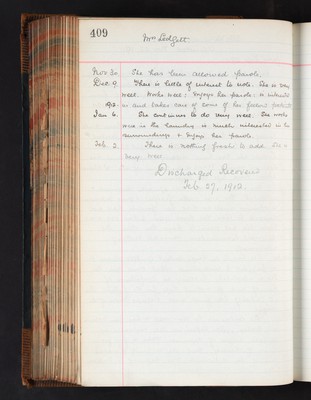 409
Mrs Ledgett.
Nov 30. She has been allowed parole.
Dec. 9. There is little of interest to note. She is very
well. Works well: Enjoys her parole: is interested
in and takes care of some of her fellow patients
Jan 6. She continues to do very well. She works
in the laundry is much interested in her
surroundings & enjoys her parole.
Feb. 3. There is nothing fresh to add. She is
very well.
Discharged Recovered
Feb. 27. 1912.